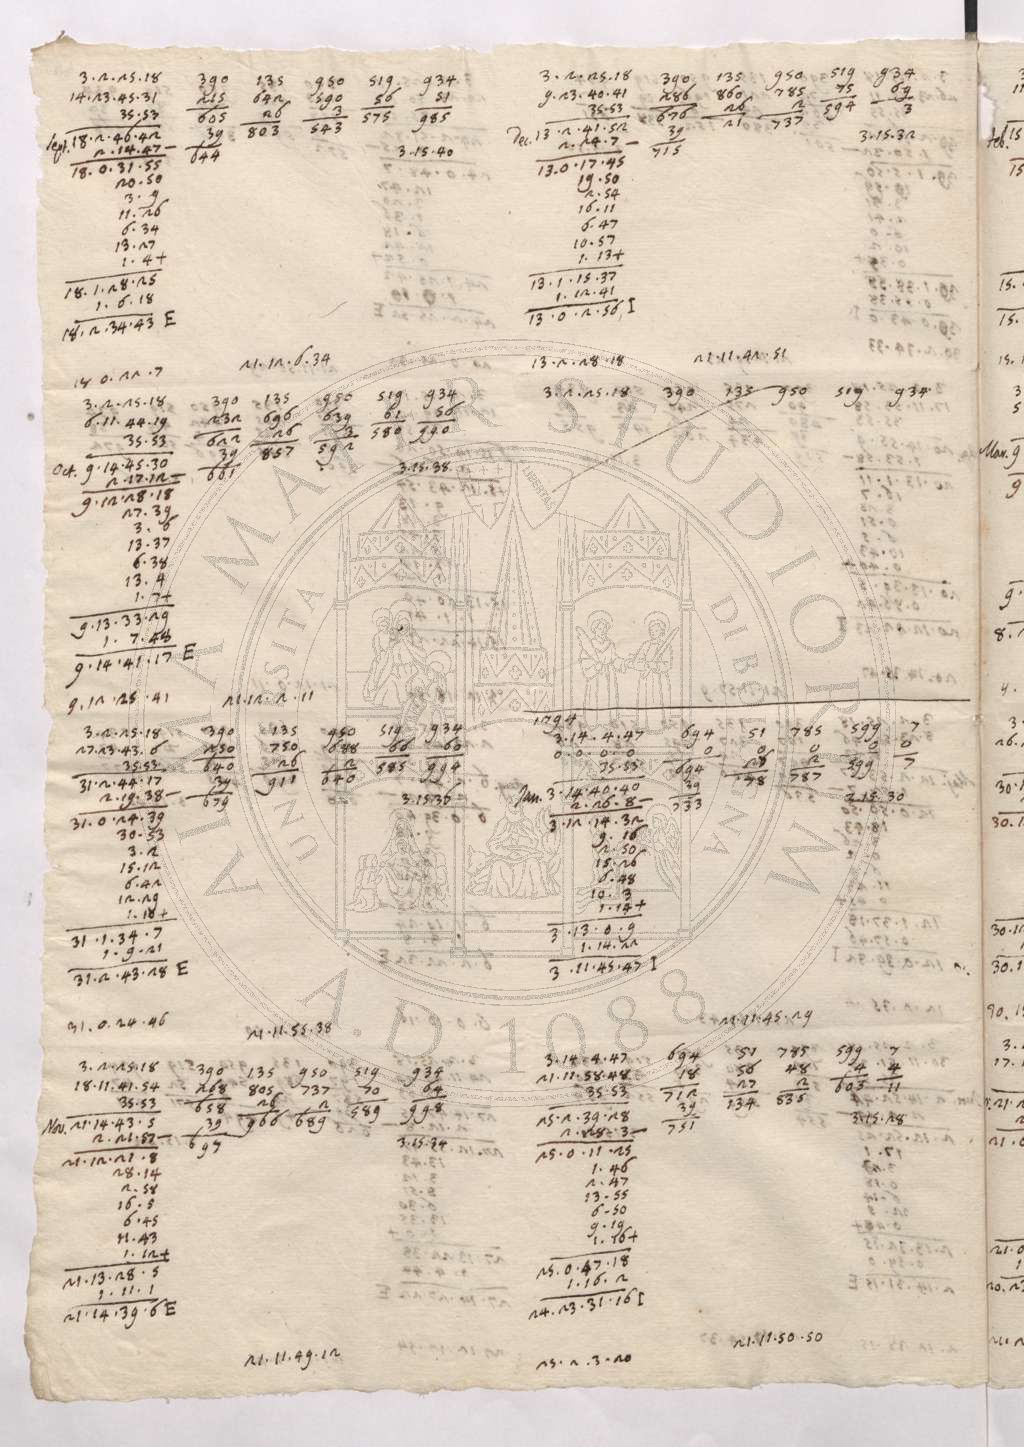 3.2.25.18 390 135 950 519 934
14.23.45.31 215 642 590 56 51
35.53 605 26 3 575 985
Sept. 18.2.46.42 39 803 543
2.14.47— 644 3.15.40
18.0.31.55
20.50
3.9
11.26
6.34
13.27
1.4+
18.1.28.25
1.6.18
18.2.34.43 E
18.0.22.7 21.12.6.34
3.2.25.18 390 135 950 519 934
6.11.44.19 232 696 639 61 56
35.53 622 26 3 580 990
Oct. 9.14.45.30 39 857 592
2.17.12— 661 3.15.38
9.12.28.18
27.39
3.6
13.37
6.38
13.4
1.7+
9.13.33.29
1.7.48
9.14.41.17 E
9.12.25.41 21.12.2.11
3.2.25.18 390 135 950 519 934
27.23.43.6 250 750 688 66 60
35.53 640 26 2 585 994
31.2.44.17 39 911 640
2.19.38— 679 3.15.36
31.0.24.39
30.53
3.2
15.12
6.42
12.29
1.10+
31.1.34.7
1.9.21
31.2.43.28 E
31.0.24.46 21.11.55.38
3.2.25.18 390 135 950 519 934
18.11.41.54 268 805 737 70 64
35.53 658 26 2 589 998
Nov. 21.14.43.5 39 966 689
2.21.57— 697 3.15.34
21.12.21.8
28.14
2.58
16.5
6.45
11.43
1.12+
21.13.28.5
1.11.1
21.14.39.6 E
21.11.49.12
3.2.25.18 390 135 950 519 934
9.23.40.41 286 860 785 75 69
35.53 676 26 2 594 3
Dec. 13.2.41.52 39 21 737
2.24.7— 715 3.15.32
13.0.17.45
19.50
2.54
16.11
6.47
10.57
1.13+
13.1.15.37
1.12.41
13.0.2.56 I
13.2.28.18 21.11.42.51
3.2.25.18 390 135 950 519 934
1794
3.14.4.47 694 51 785 599 7
0.0.0.0 0 0 0 0 0
35.53 694 26 2 599 7
Jan. 3.14.40.40 39 78 787
2.26.8— 733 3.15.30
3.12.14.32
9.16
2.50
15.26
6.48
10.3
1.14+
3.13.0.9
1.14.22
3.11.45.47 I
21.11.45.29
3.14.4.47 694 51 785 599 7
21.11.58.48 18 56 48 4 4
35.53 712 27 2 603 11
25.2.39.28 39 134 835
2.28.3— 751 3.15.28
25.0.11.25
1.46
2.47
13.55
6.50
9.19
1.16+
25.0.47.18
1.16.2
24.23.31.16 I
21.11.50.50
23.2.3.20
ALMA MATER STUDIORUM
UNIVERSITA DI BOLOGNA
A.D. 1088